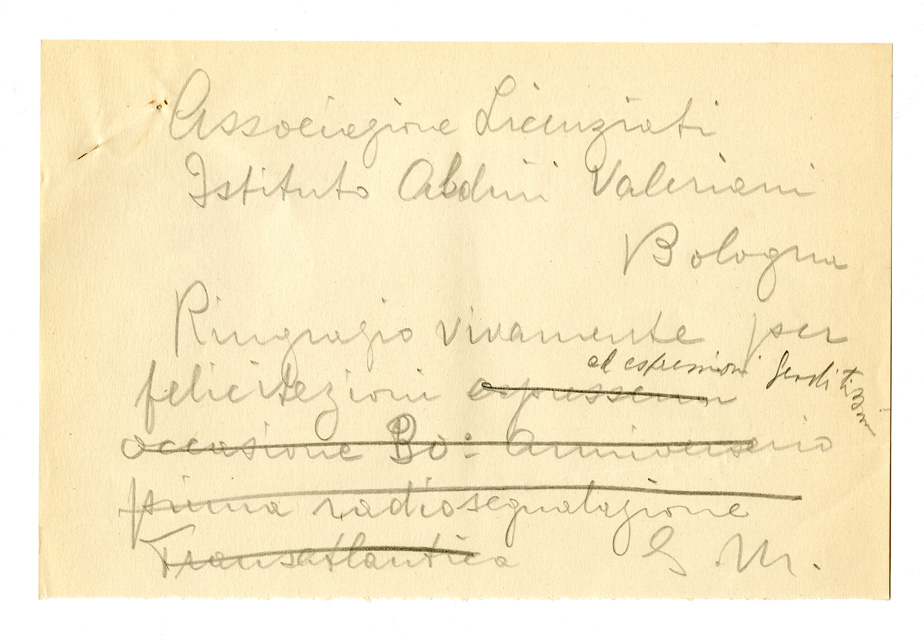 Associazione Licenziati
Istituto Aldini Valeriani
Bologna
Ringrazio vivamente per
ed espressioni gentilissimi
felicitazioni espressemi
occasione 30º anniversario
prima radiosegnalazione
Transatlantica G. M.